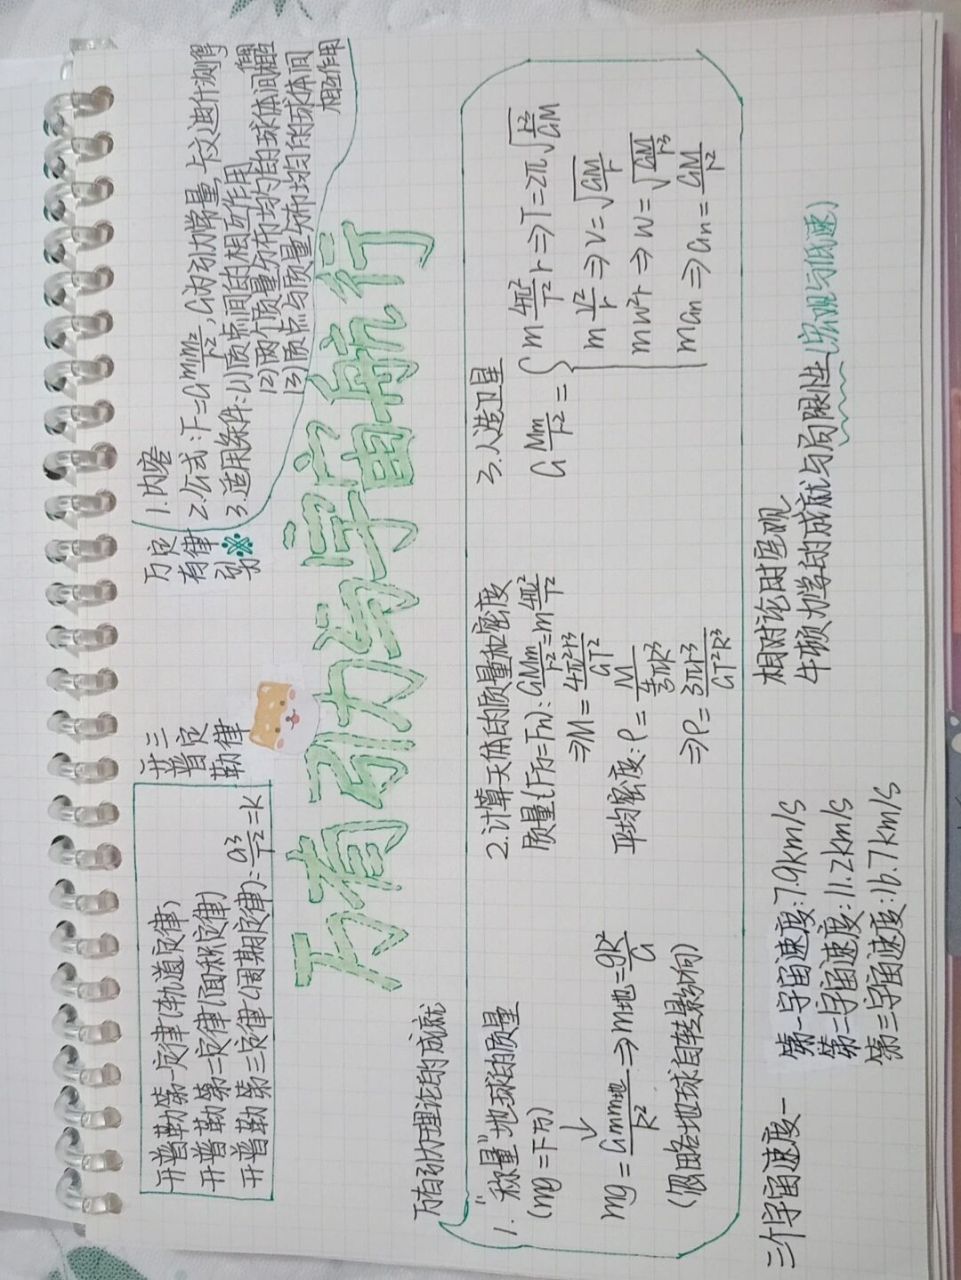 开普勒第一定律(轨道定律)
开普勒第二定律(面积定律)
开普勒第三定律(周期定律):a³/T²=K
开三
普定
勒律
万定
有律
引
力
1.内容
2.公式:F=G m₁m₂/r²,G为引力常量,卡文迪什测得
3.适用条件:(1)质点间的相互作用
(2)两个质量分布均匀的球体间相互作用
(3)质点与质量分布均匀的球体间
相互作用
万有引力与宇宙航行
万有引力理论的成就
1."称量"地球的质量
(mg=F万)
↓
mg=Gmm地/R²⇒m地=gR²/G
(忽略地球自转影响)
2.计算天体的质量和密度
质量(F万=Fn):GMm/r²=m4π²/T²
⇒M=4π²r³/GT²
平均密度:ρ=M/(4/3πR³)
⇒ρ=3πr³/GT²R³
3.人造卫星
G Mm/r²={m 4π²/T² r⇒T=2π√(r³/GM)
m v²/r⇒v=√(GM/r)
mw²r⇒w=√(GM/r³)
man⇒an=GM/r²
三个宇宙速度—
第一宇宙速度:7.9km/s
第二宇宙速度:11.2km/s
第三宇宙速度:16.7km/s
相对论时空观
牛顿力学的成就与局限性(宏观与低速)